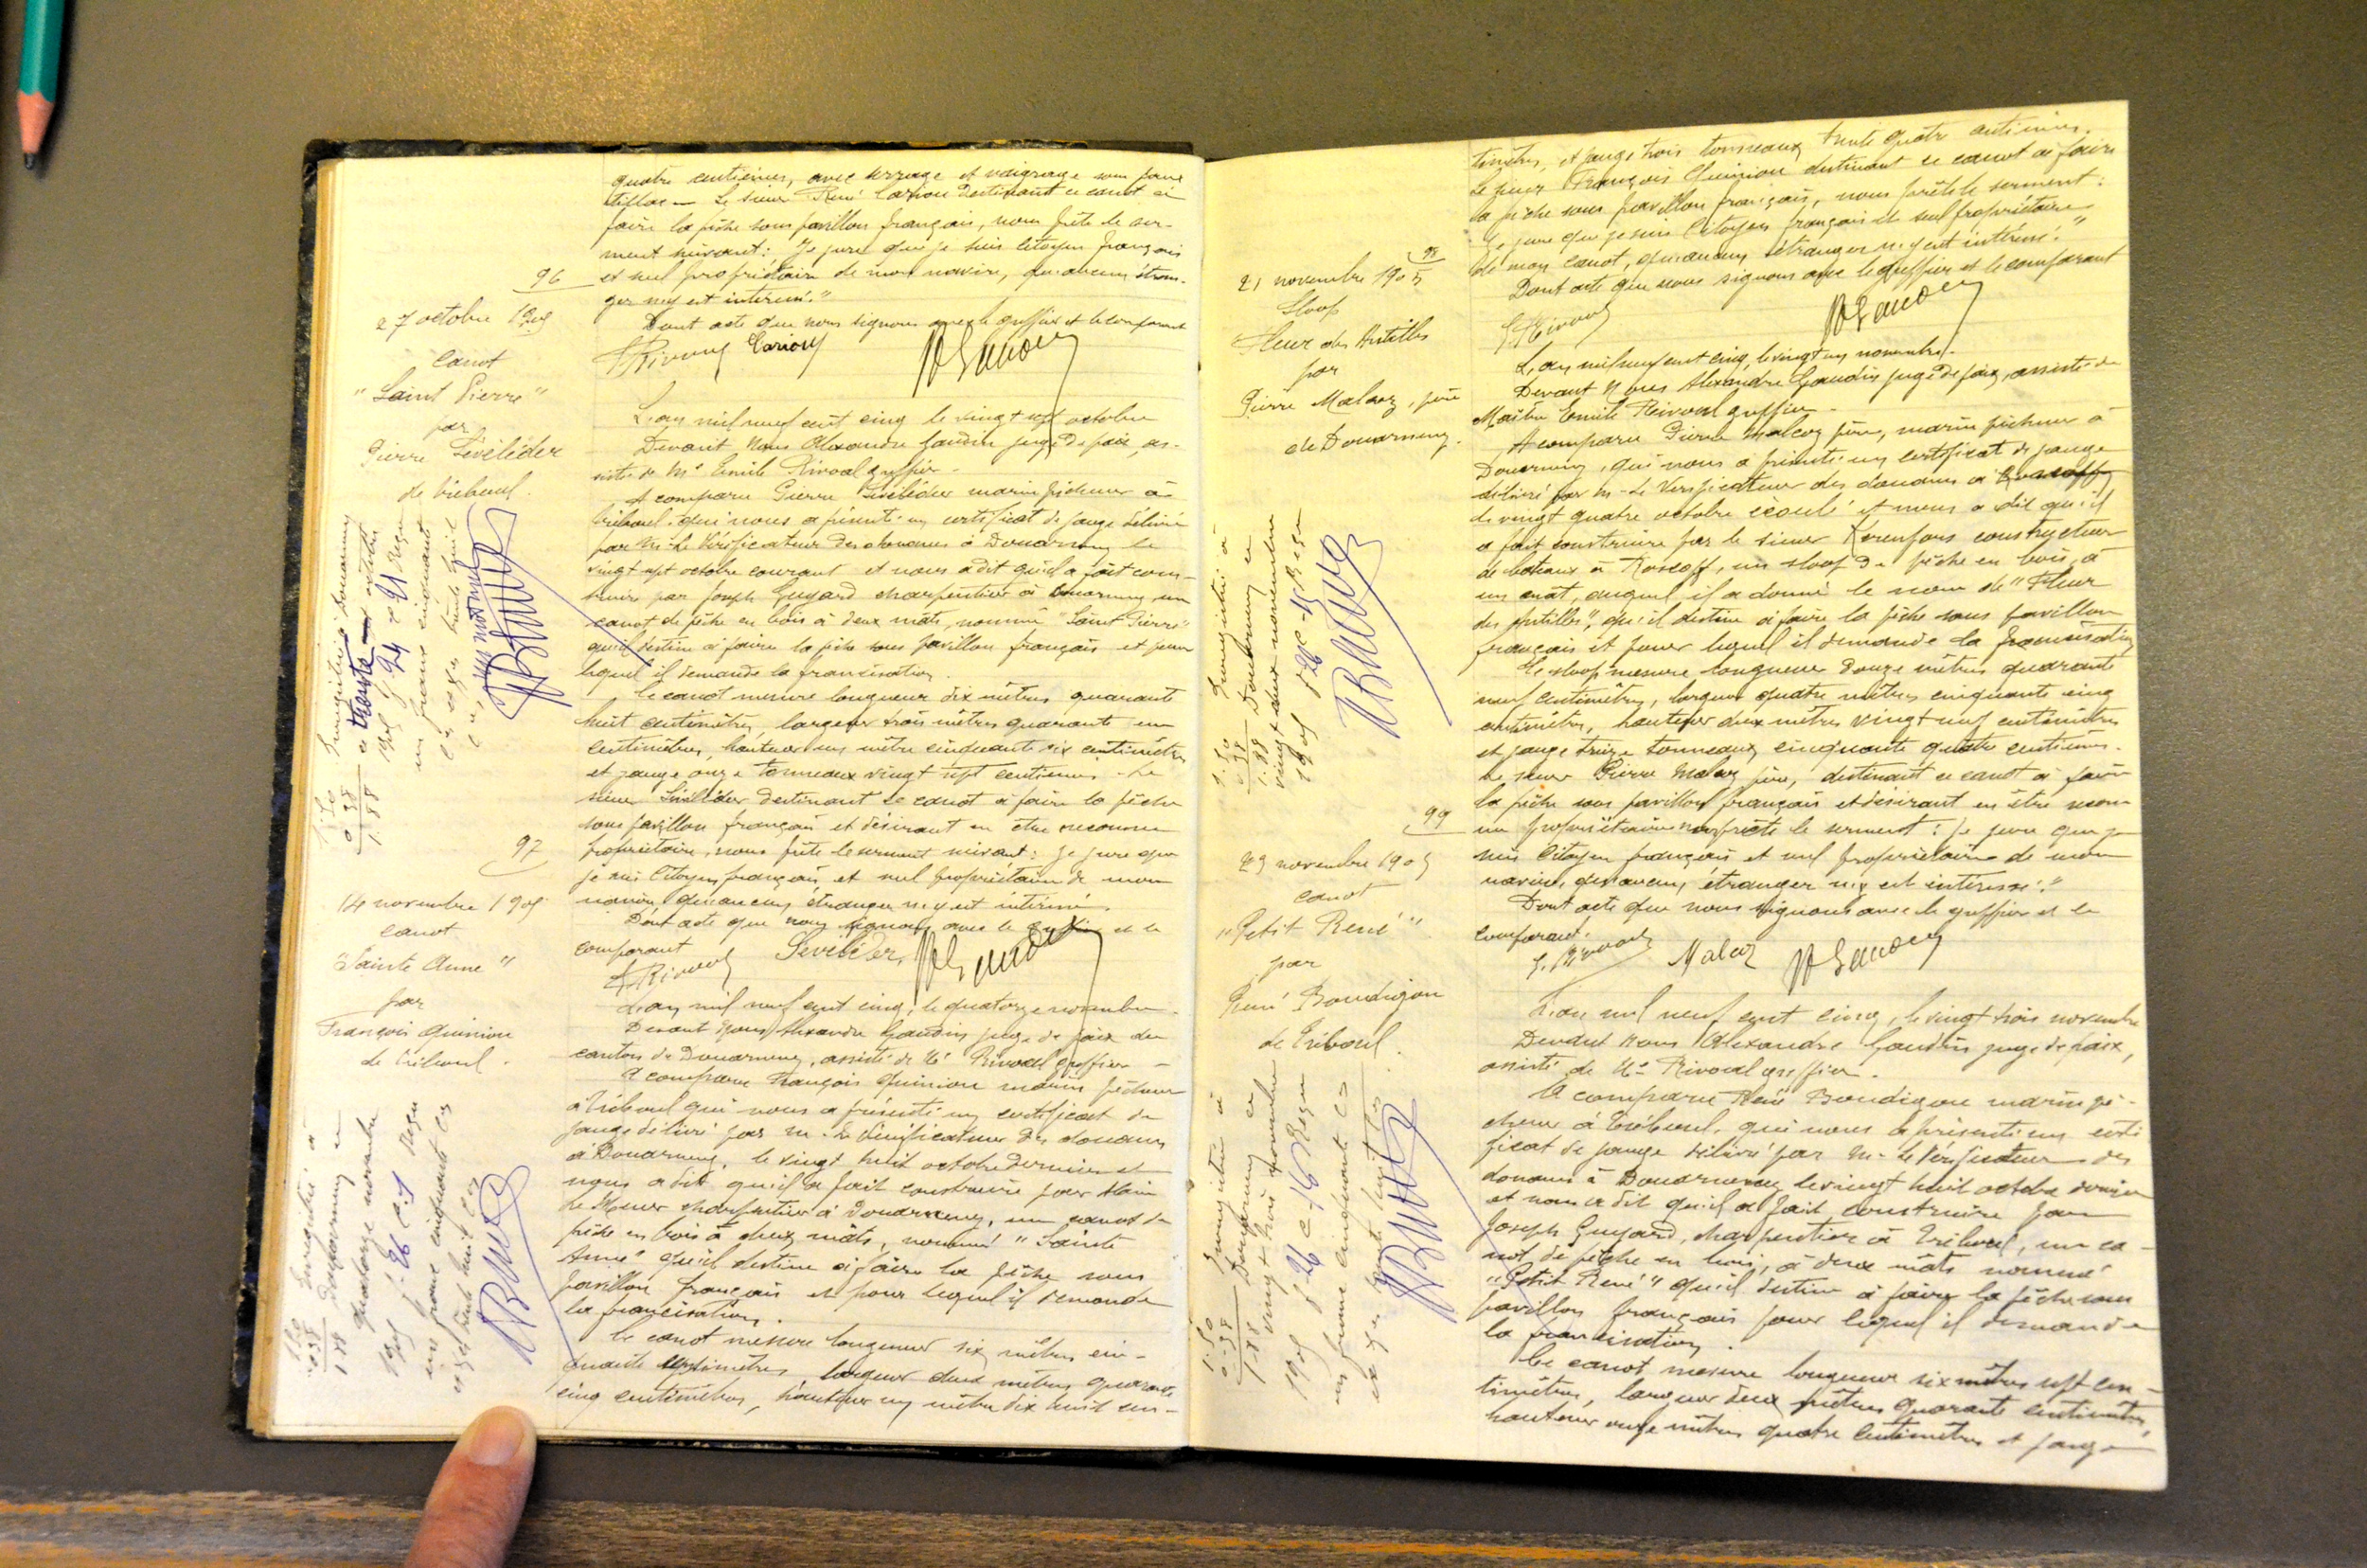 quatre centièmes, avec serrage et vaigrage sous faux
tillac — Le sieur René Cariou destinant ce canot à
faire la pêche sous pavillon français, nous prête le ser-
ment suivant : "Je jure que je suis citoyen français
et seul propriétaire de mon navire, qu'aucun étran-
ger n'y est intéressé."
Dont acte que nous signons avec le greffier et le comparant
E Rivoal Cariou A Gaudin
96
27 octobre 1905
Canot
"Saint Pierre"
par
Pierre Lévéléder
de Tréboul.
L'an mil neuf cent cinq le vingt sept octobre
Devant Nous Alexandre Gaudin juge de paix, as-
sisté de Me Emile Rivoal greffier -
A comparu Pierre Lévéléder marin pêcheur à
Tréboul qui nous a présenté un certificat de jauge délivré
par Mr le Vérificateur des douanes à Douarnenez le
vingt sept octobre courant et nous a dit qu'il a fait cons-
truire par Joseph Guyard charpentier à Douarnenez un
canot de pêche en bois à deux mâts, nommé "Saint Pierre"
qu'il destine à faire la pêche sous pavillon français et pour
lequel il demande la francisation.
Le canot mesure longueur dix mètres quarante
huit centimètres, largeur trois mètres quarante un
centimètres, hauteur un mètre cinquante six centimètres
et jauge onze tonneaux vingt sept centièmes - Le
sieur Lévéléder destinant ce canot à faire la pêche
sous pavillon français et désirant en être reconnu
propriétaire, nous prête le serment suivant : Je jure que
je suis Citoyen français et seul propriétaire de mon
navire, qu'aucun étranger n'y est intéressé.
Dont acte que nous signons avec le greffier et le
comparant
E Rivoal Leveleder A Gaudin
Enregistré à Douarnenez
le trente octobre
1905 f° 24 c 91 Reçu
un franc cinquante
c
1.50
0.38
1.88
97
14 novembre 1905
canot
"Sainte Anne"
par
François Quinion
de Tréboul.
L'an mil neuf cent cinq, le quatorze novembre -
Devant Nous Alexandre Gaudin juge de paix du
canton de Douarnenez, assisté de Me Rivoal greffier -
A comparu François Quinion marin pêcheur
à Tréboul qui nous a présenté un certificat de
jauge délivré par Mr le Vérificateur des douanes
à Douarnenez, le vingt huit octobre dernier et
nous a dit qu'il a fait construire par Alain
charpentier à Douarnenez, un canot de
pêche en bois à deux mâts, nommé "Sainte
Anne" qu'il destine à faire la pêche sous
pavillon français et pour lequel il demande
la francisation.
Ce canot mesure longueur six mètres cin-
quante centimètres largeur deux mètres quarante
cinq centimètres, hauteur un mètre dix huit cen-
Enregistré à
Douarnenez le
quatorze novembre
1905 f° 26 c 1 Reçu
un franc cinquante ces
et ces trente huit ces
1.50
0.38
1.88
timètres, et jauge trois tonneaux trente quatre centièmes.
Le sieur François Quinion destinant ce canot à faire
la pêche sous pavillon français, nous prête le serment :
"Je jure que je suis Citoyen français et seul propriétaire
de mon canot, qu'aucun étranger n'y est intéressé."
Dont acte que nous signons avec le greffier et le comparant
E Rivoal A Gaudin
98
21 novembre 1905
Sloop
Fleur des Antilles
par
Pierre Malcoz, père
de Douarnenez.
L'an mil neuf cent cinq, le vingt un novembre.
Devant Nous Alexandre Gaudin juge de paix, assisté de
Maître Emile Rivoal greffier -
A comparu Pierre Malcoz père, marin pêcheur à
Douarnenez, qui nous a présenté un certificat de jauge
délivré par Mr le Vérificateur des douanes à Roscoff
le vingt quatre octobre écoulé et nous a dit qu'il
a fait construire par le sieur Kerenfors constructeur
de bateaux à Roscoff, un sloop de pêche en bois, à
un mât, auquel il a donné le nom de "Fleur
des Antilles", qu'il destine à faire la pêche sous pavillon
français et pour lequel il demande la francisation
Le sloop mesure longueur douze mètres quarante
neuf centimètres, largeur quatre mètres cinquante cinq
centimètres, hauteur deux mètres vingt neuf centimètres
et jauge treize tonneaux cinquante quatre centièmes.
Le sieur Pierre Malcoz père, destinant ce canot à faire
la pêche sous pavillon français et désirant en être recon-
nu propriétaire nous prête le serment : Je jure que je
suis Citoyen français et seul propriétaire de mon
navire, qu'aucun étranger n'y est intéressé."
Dont acte que nous signons avec le greffier et le
comparant.
E. Rivoal Malcoz A Gaudin
Enregistré à
Douarnenez le
vingt deux novembre
1905 f° 26 c 15 Reçu
1.50
0.38
1.88
99
23 novembre 1905
canot
"Petit René"
par
René Boudigou
de Tréboul.
L'an mil neuf cent cinq, le vingt trois novembre
Devant Nous Alexandre Gaudin juge de paix,
assisté de Me Rivoal greffier.
A comparu René Boudigou marin pê-
cheur à Tréboul, qui nous a présenté un certi
ficat de jauge délivré par Mr le Vérificateur des
douanes à Douarnenez le vingt huit octobre dernier
et nous a dit qu'il a fait construire par
Joseph Guyard, charpentier à Tréboul, un ca-
not de pêche en bois, à deux mâts nommé
"Petit René" qu'il destine à faire la pêche sous
pavillon français pour lequel il demande
la francisation.
Ce canot mesure longueur six mètres sept cen-
timètres, largeur deux mètres quarante centimètres,
hauteur onze mètres quatre centimètres et jauge
Enregistré à
Douarnenez le
vingt trois novembre
1905 f° 26 c 16 Reçu
un franc cinquante ces
1.50
0.38
1.88